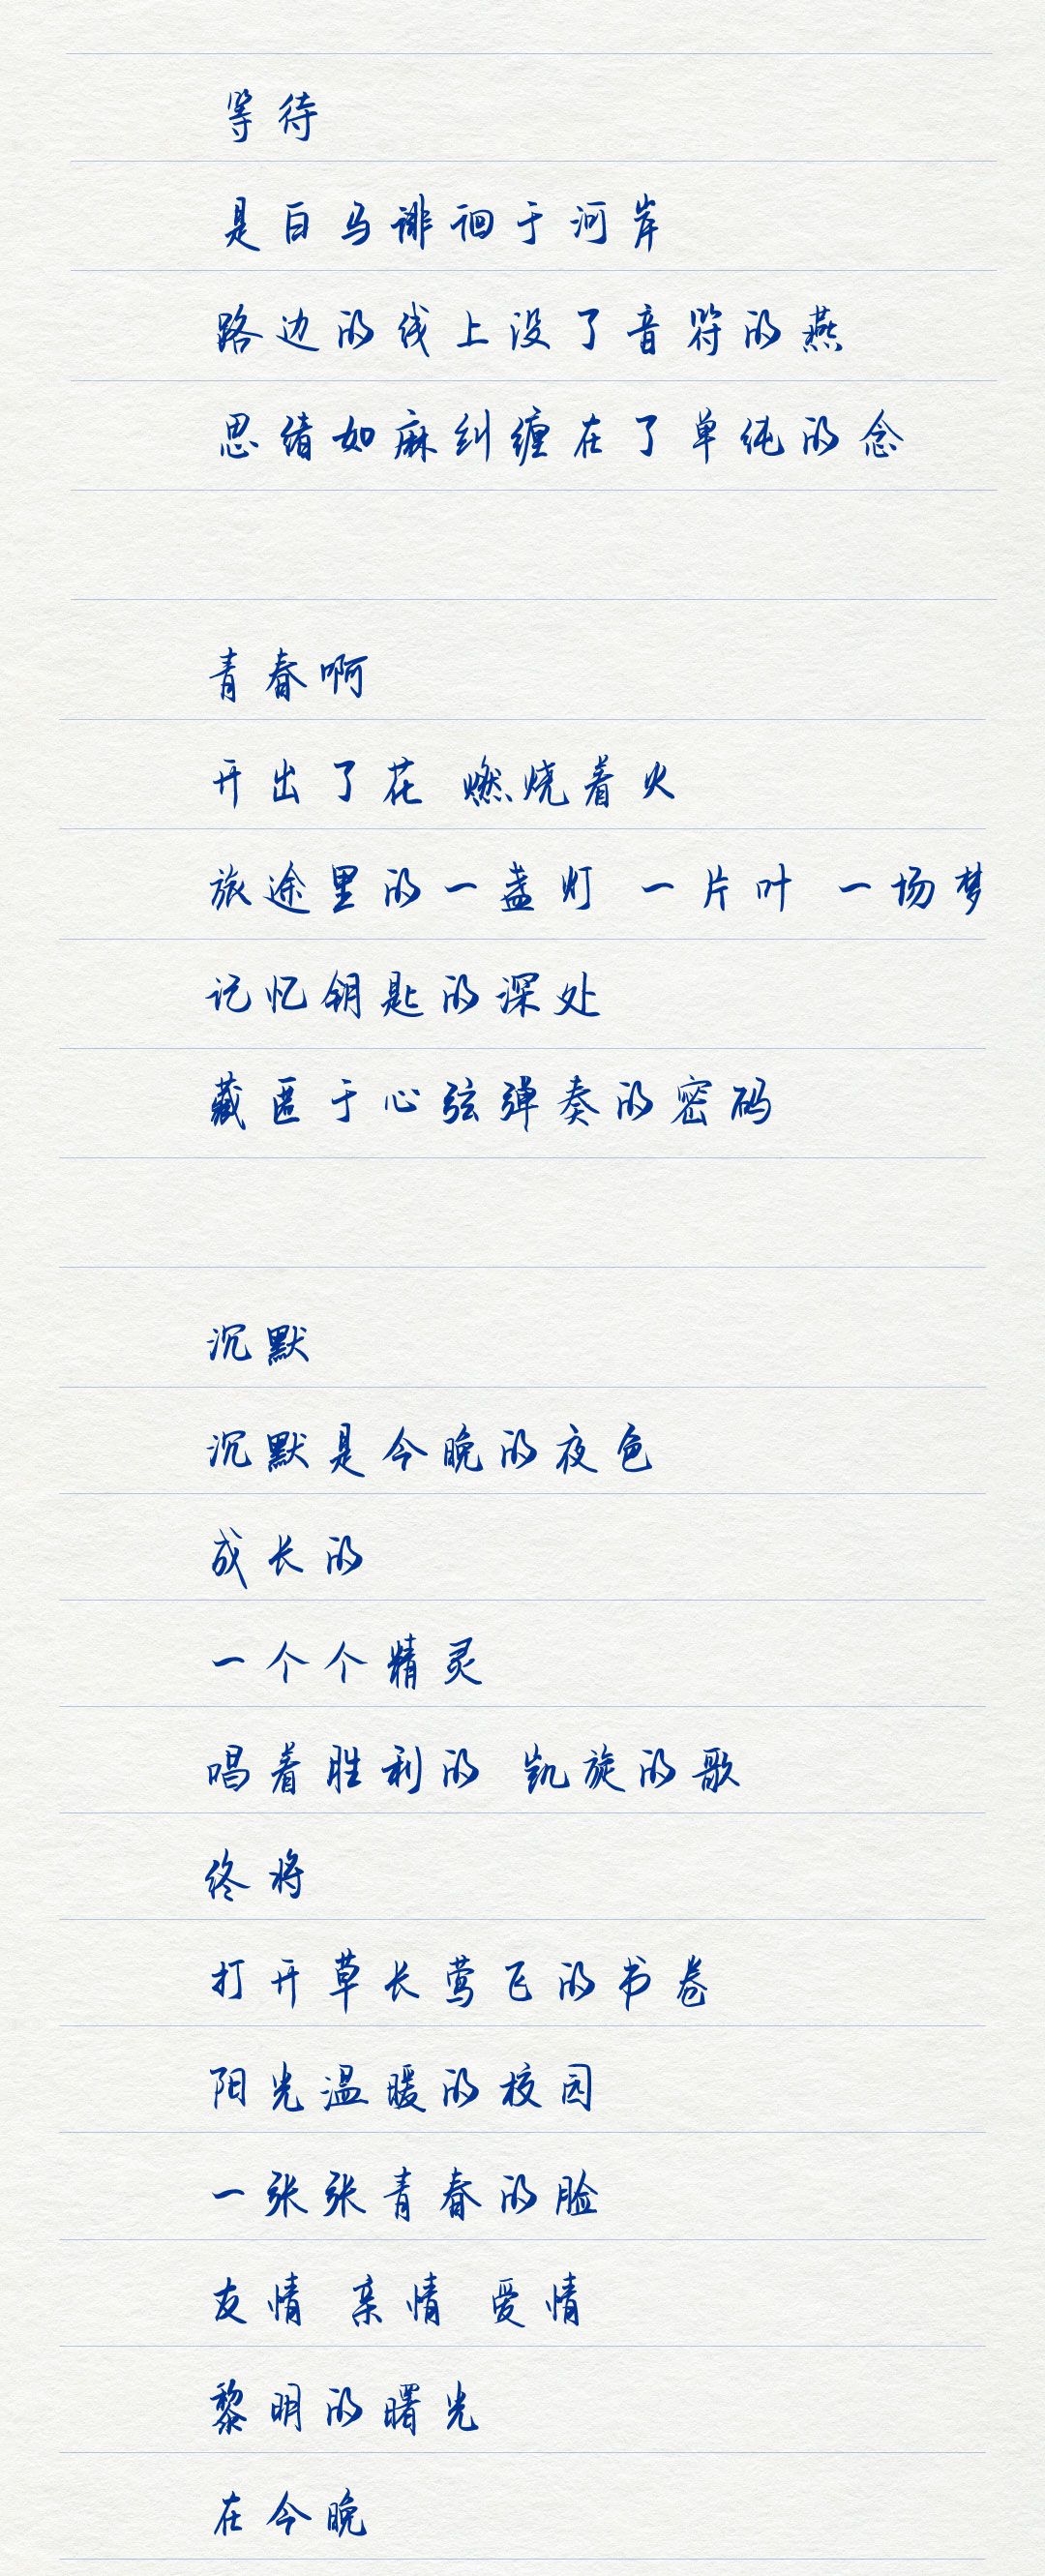 等待
是白马徘徊于河岸
路边的线上没了音符的燕
思绪如麻纠缠在了单纯的念
青春啊
开出了花 燃烧着火
旅途里的一盏灯 一片叶 一场梦
记忆钥匙的深处
藏匿于心弦弹奏的密码
沉默
沉默是今晚的夜色
成长的
一个个精灵
唱着胜利的 凯旋的歌
终将
打开草长莺飞的书卷
阳光温暖的校园
一张张青春的脸
友情 亲情 爱情
黎明的曙光
在今晚